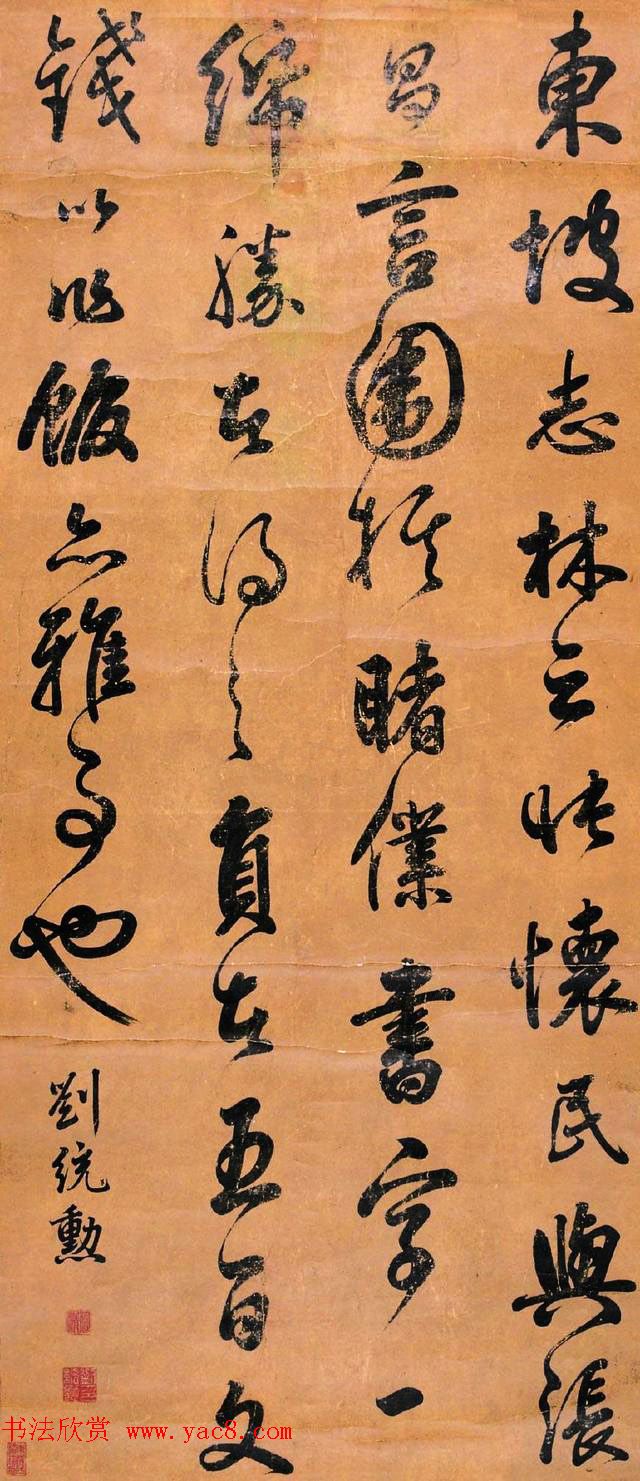 東坡志林云張懷民與張
昌言圍棋賭僕書字一
紙勝者得之負者出五百文
錢以作飯亦雅事也
劉統勳
书法欣赏 www.yac8.com